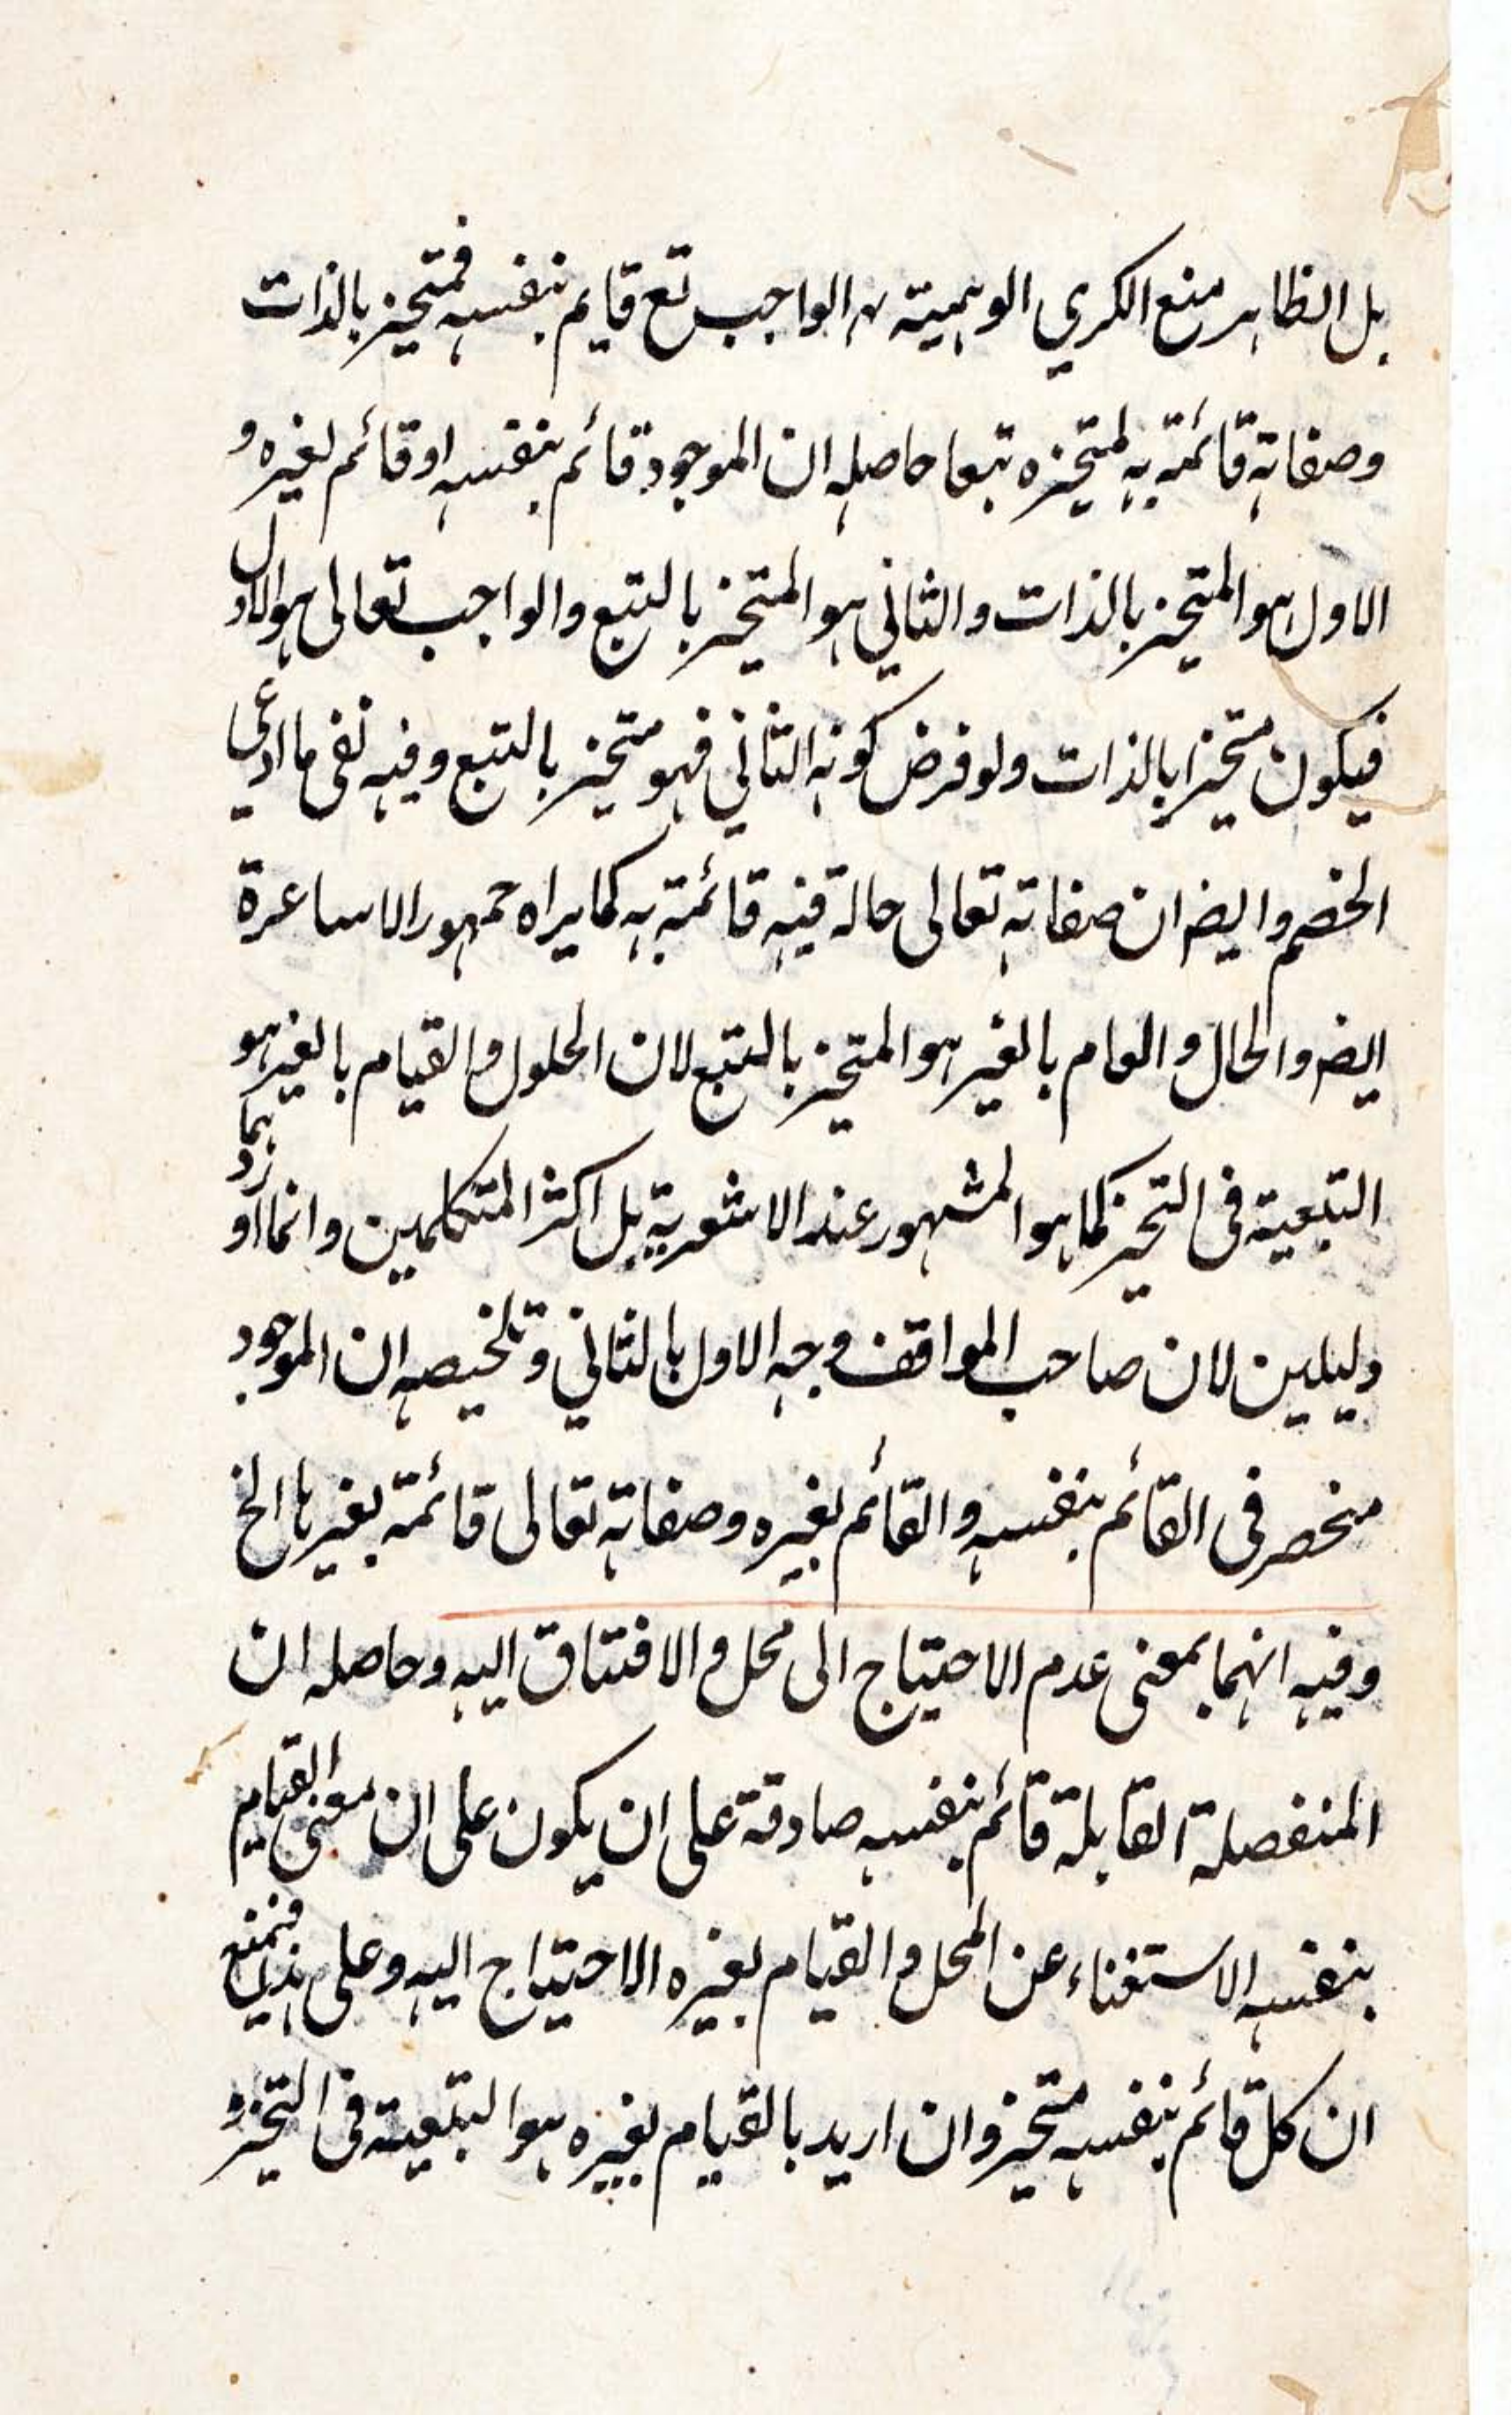 بل الظاهر منع الكبرى الوهمية الواجب تع قايم بنفسه فمتحيز بالذات
وصفاته قائمة به لمتحيزه تبعا حاصله ان الموجود قائم بنفسه او قائم لغيره و
الاول هو المتحيز بالذات والثاني هو المتحيز بالتبع والواجب تعالى هو الاول
فيكون متحيزا بالذات ولو فرض كونه الثاني فهو متحيز بالتبع وفيه نفى ما ادعى
الخصم وايضا ان صفاته تعالى حالة فيه قائمة به كما يراه جمهور الاساعرة
ايضا والحال والعام بالغير هو المتحيز بالتبع لان الحلول والقيام بالغير هو
التبعية في التحيز كما هو المشهور عند الاشعرية بل اكثر المتكلمين وانما اوردهما
دليلين لان صاحب المواقف وجه الاول بالثاني وتلخيصه ان الموجود
منحصر في القائم بنفسه والقائم لغيره وصفاته تعالى قائمة بغيرها الخ
وفيه انهما بمعنى عدم الاحتياج الى محل والافتقاق اليه وحاصله ان
المنفصلة القابلة قائم بنفسه صادقة على ان يكون على ان معنى القيام
بنفسه الاستغناء عن المحل والقيام لغيره الاحتياج اليه وعلى هذا فنمنع
ان كل قائم بنفسه متحيز وان اريد بالقيام بغيره هو التبعية في التحيز و